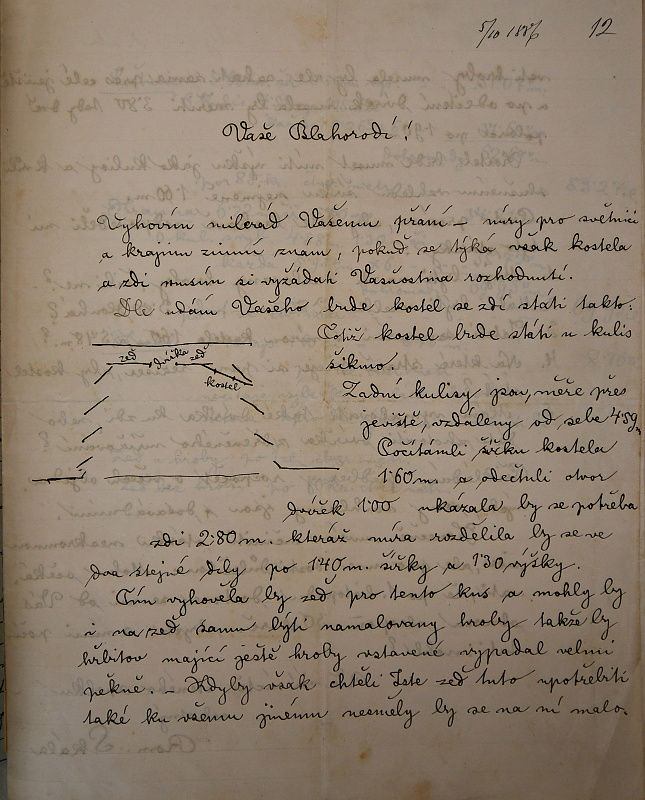 5/10 1886
12
Vaše Blahorodí!
Vyhovím milerád Vašemu přání – míry pro světnici
a krajinu zimní znám, pokud se týká však kostela
a zdi musím si vyžádati Vašnostina rozhodnutí.
Dle udání Vašeho bude kostel se zdí státi takto:
Totiž kostel bude státi u kulis
šikmo.
zeď dvířka zeď
kostel
Zadní kulisy jsou, měře přes
jeviště, vzdáleny od sebe
Počítámli šířku kostela
1·60 m. a odečtuli otvor
dvířek 1·00 ukázala by se potřeba
zdi 2·80 m. kteráž míra rozdělila by se ve
dva stejné díly po 1·40 m. šířky a 1·30 výšky.
Tím vyhověla by zeď pro tento kus a mohly by
i na zeď samu býti namalovany hroby takže by
hřbitov mající ještě hroby vstavené vypadal velmi
pěkně. – Kdyby však chtěli Jste zeď tuto upotřebiti
také ku všemu jinému nesměly by se na ní malo-